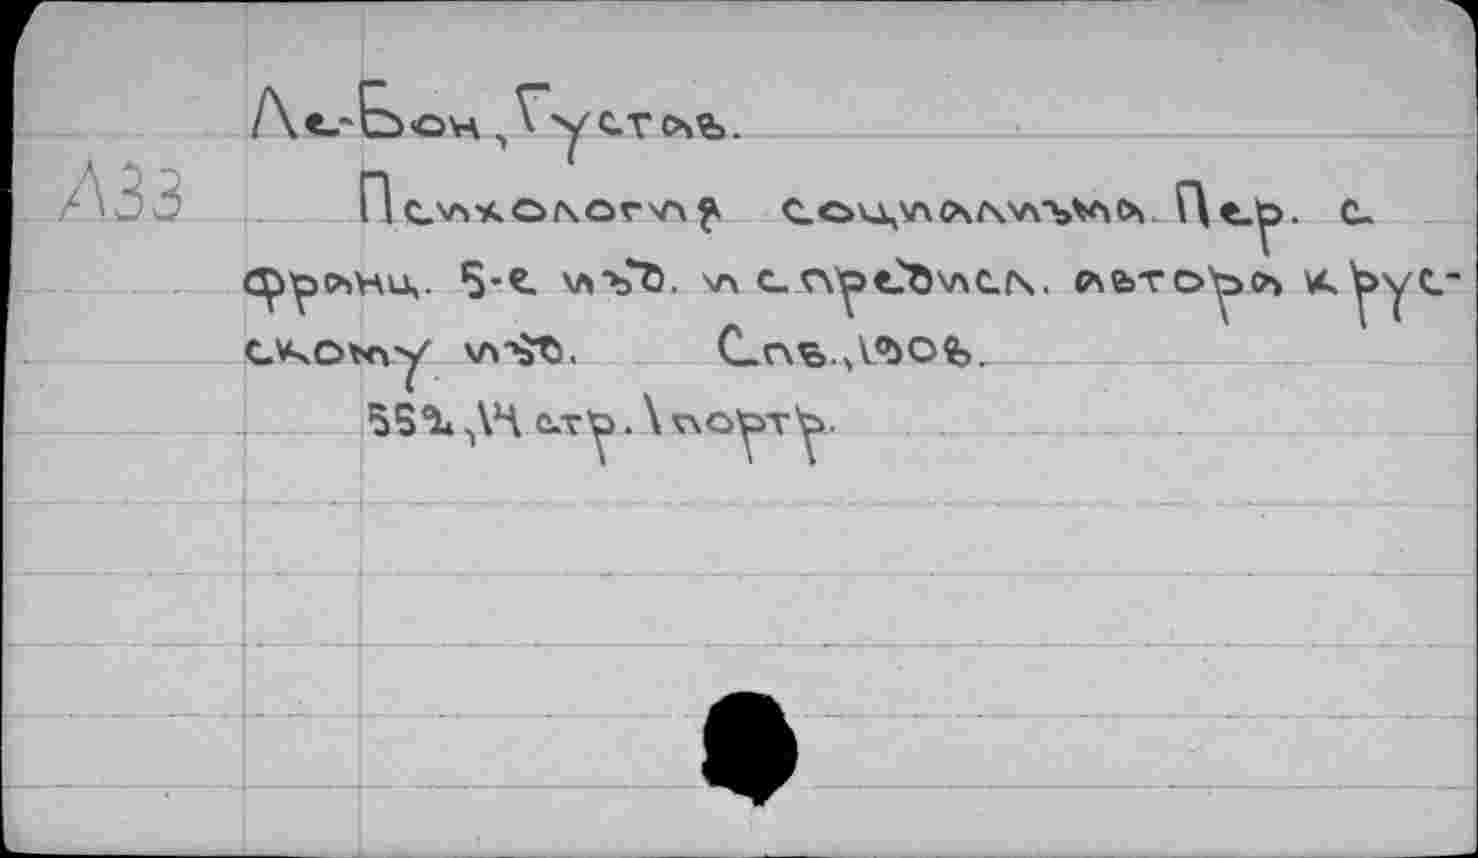 Ле-Бон, Густав.
Л33 Психология социализма. Пер. с
франц. 5-е изд. и с предисл. автора к рус-
скому изд. Спб., 1908.
552, 14 стр. 1 портр.